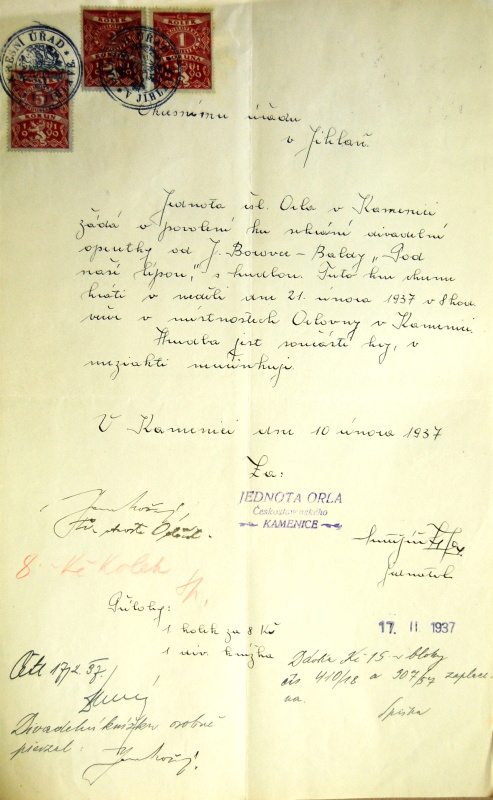 ČP
KOLEK
1
KORUNA
5
KORUN
V JIHL
Okresnímu úřadu
v Jihlavě.
Jednota čsl. Orla v Kamenici
žádá o povolení ku sehrání divadelní
operetky od J. Borovce - Baldy „Pod
naší lípou," s hudbou. Tuto hru chceme
hráti v neděli dne 21. února 1937 v 8 hod
večer v místnostech Orlovny v Kamenici.
Hudba jest součástí hry, v
meziaktí neúčinkuje.
V Kamenici dne 10 února 1937
Za:
JEDNOTA ORLA
Československého
KAMENICE
Jednatel
8 - Kč Kolek
Přílohy:
1 kolek za 8 Kč
1 div. knížka
17. II 1937
Dávka Kč 15 - v bloky
čís 410/18 a 907/37 zaplace-
na.
17/2. 37.
Divadelní knížku osobně
převzal: